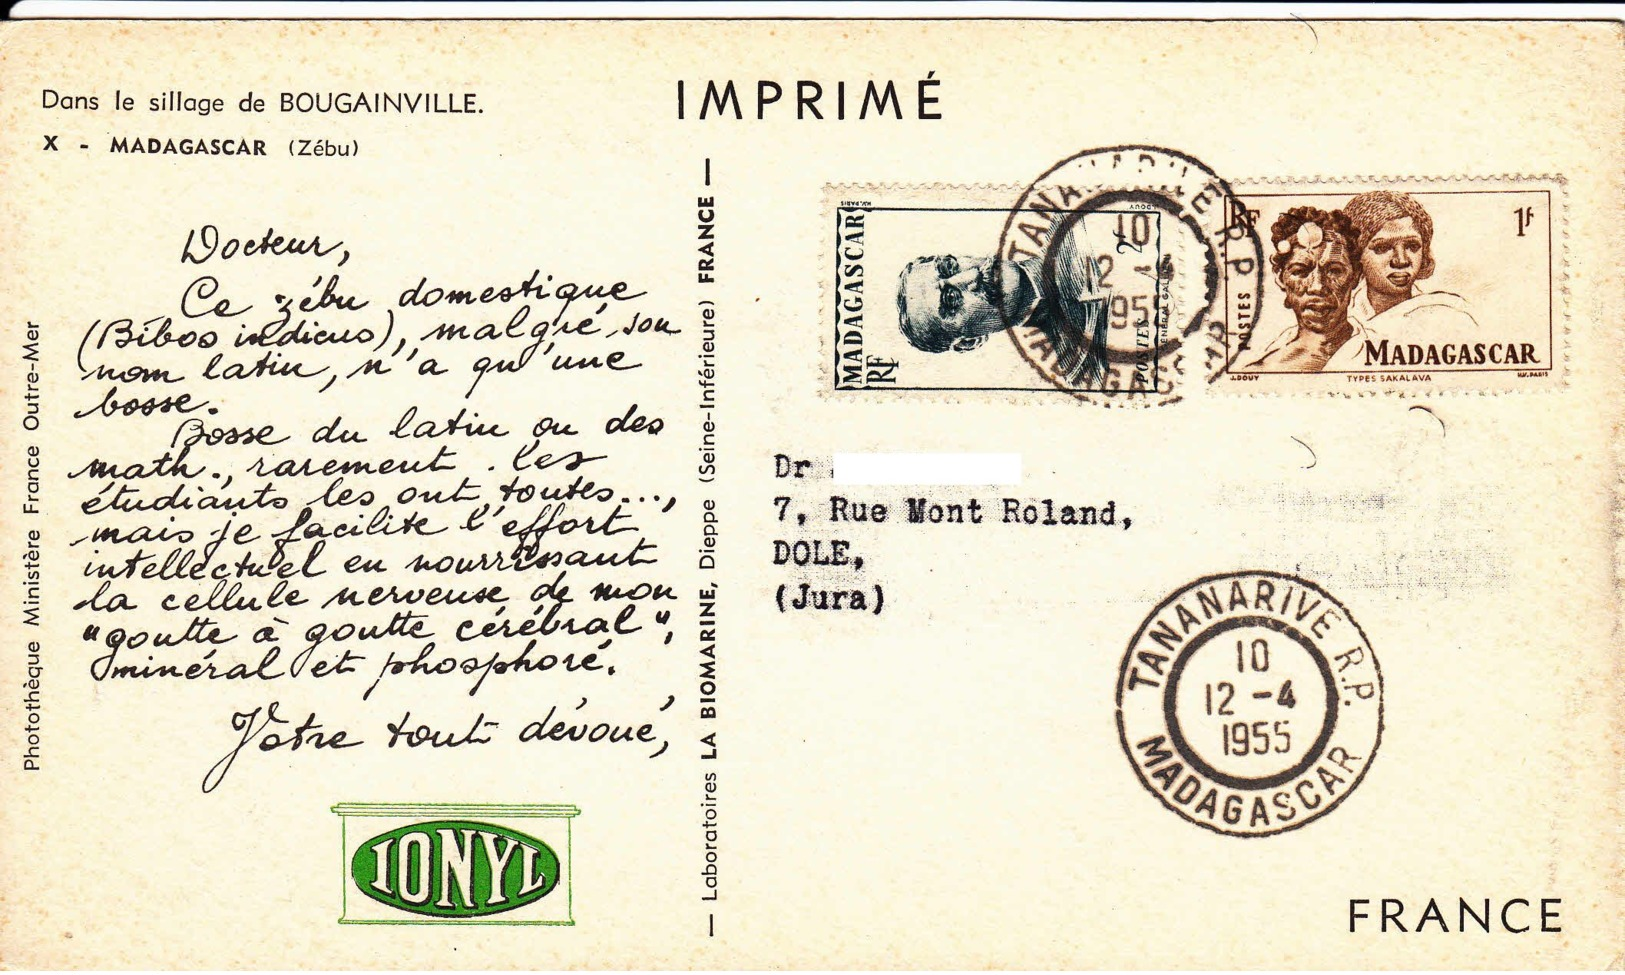 Dans le sillage de BOUGAINVILLE.
X - MADAGASCAR (Zébu)
IMPRIMÉ
Docteur,
Ce zébu domestique
(Bibos indicus), malgré son
nom latin, n'a qu'une
bosse.
Bosse du latin ou des
math., rarement. les
étudiants les ont toutes...,
mais je facilite l'effort
intellectuel en nourrissant
la cellule nerveuse de mon
"goutte à goutte cérébral",
minéral et phosphoré.
Votre tout dévoué,
IONYL
Photothèque Ministère France Outre-Mer
— Laboratoires LA BIOMARINE, Dieppe (Seine-Inférieure) FRANCE —
MADAGASCAR
RF
2f
POSTES
GÉNÉRAL GALLIENI
J.DOUY
HV.PARIS
TANANARIVE R.P.
10
12 -4
1955
MADAGASCAR
RF
1f
POSTES
MADAGASCAR
J.DOUY
TYPES SAKALAVA
HV.PARIS
Dr
7, Rue Mont Roland,
DOLE,
(Jura)
TANANARIVE R.P.
10
12 -4
1955
MADAGASCAR
FRANCE